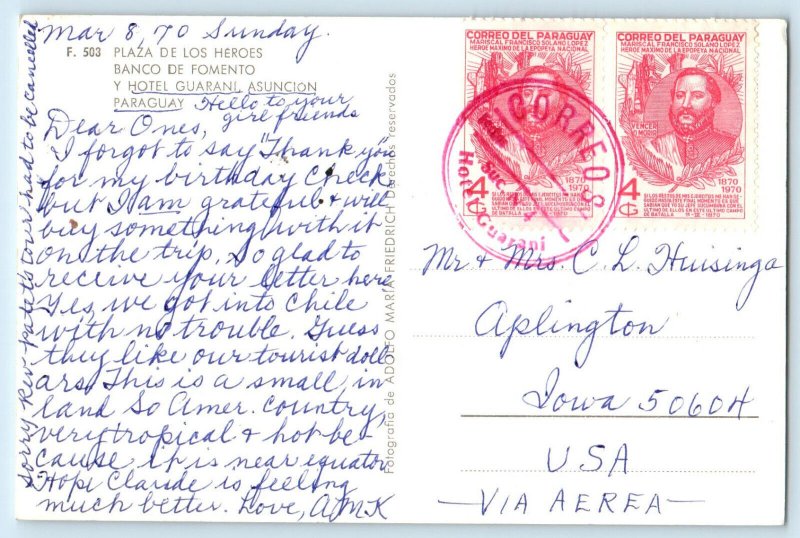 Mar 8, 70 Sunday.
F. 503 PLAZA DE LOS HEROES
BANCO DE FOMENTO
Y HOTEL GUARANI, ASUNCION
PARAGUAY
Hello to your
girl friends
Dear Ones,
I forgot to say "Thank you"
for my birthday check
but I am grateful & will
buy something with it
on the trip. So glad to
receive your letter here
Yes, we got into Chile
with no trouble. Guess
they like our tourist doll
ars. This is a small, in
land So Amer. country,
very tropical & hot be-
cause it is near equator
Hope Claride is feeling
much better. Love, AMK
Sorry Rev tour had to be cancelled
Fotografia de ADOLFO MARIA FRIEDRICH Derechos reservados
CORREO DEL PARAGUAY
MARISCAL FRANCISCO SOLANO LOPEZ
HEROE MAXIMO DE LA EPOPEYA NACIONAL
1870
1970
4
G
CORREO DEL PARAGUAY
MARISCAL FRANCISCO SOLANO LOPEZ
HEROE MAXIMO DE LA EPOPEYA NACIONAL
VENCER
O MORIR
1870
1970
4
G
CORREOS
Hotel Guarani
Mr & Mrs. C. L. Huisinga
Aplington
Iowa 50604
USA
—VIA AEREA—